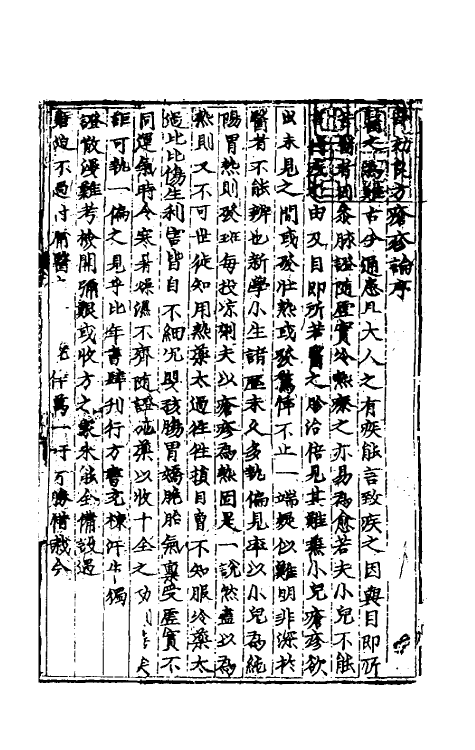 幼良方瘡疹論序
醫之為難古今通患凡大人之有疾能言致疾之因與目即所
苦醫者因參脉證隨虛實冷熱療之亦易為愈若夫小兒不能
由及目即所苦醫之胗治倍見其難焉小兒瘡疹欲
出未見之間或發壯熱或發驚悸不止一端疑似難明非深於
醫者不能辨也新學小生諸歷未久多執偏見率以小兒為純
陽胃熱則發班每投凉劑夫以瘡疹為熱固是一說然盡以為
熱則又不可世徒知用熱藥太過往往損目曾不知服冷藥太
過比比傷生利害皆自不細况嬰孩腸胃嬌脆胎氣稟受虛實不
同運氣時令寒暑燥濕不齊隨證施藥以收十全之功
詎可執一偏之見乎比年書肆刊行方書充棟汗牛獨
證散漫難考披閱彌艱或收方之未能全備設遇
不過付庸醫之手僥萬一吁可勝惜哉今